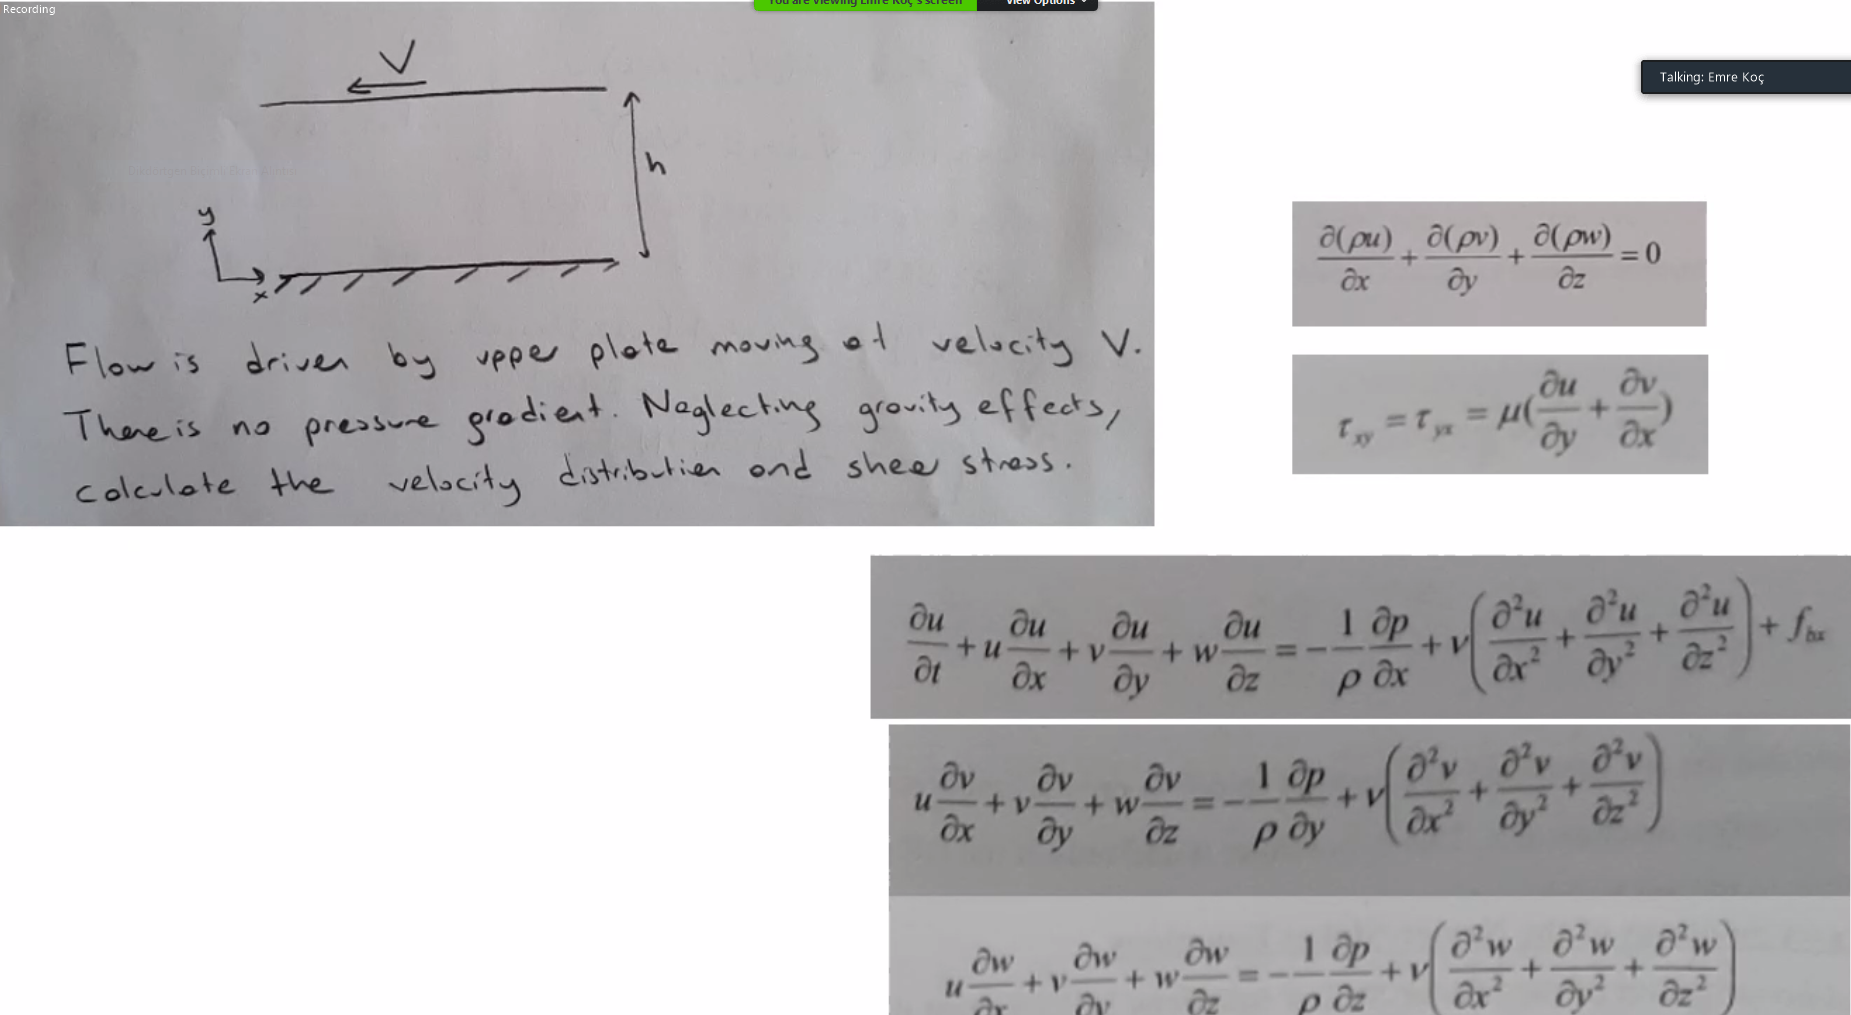 Recording
You are viewing Emre Koç's screen
View Options
Talking: Emre Koç
V
h
y
x
Flow is driven by upper plate moving at velocity V.
There is no pressure gradient. Neglecting gravity effects,
calculate the velocity distribution and shear stress.
∂(ρu)/∂x + ∂(ρv)/∂y + ∂(ρw)/∂z = 0
τxy = τyx = μ(∂u/∂y + ∂v/∂x)
∂u/∂t + u ∂u/∂x + v ∂u/∂y + w ∂u/∂z = − 1/ρ ∂p/∂x + ν(∂²u/∂x² + ∂²u/∂y² + ∂²u/∂z²) + fbx
u ∂v/∂x + v ∂v/∂y + w ∂v/∂z = − 1/ρ ∂p/∂y + ν(∂²v/∂x² + ∂²v/∂y² + ∂²v/∂z²)
u ∂w/∂x + v ∂w/∂y + w ∂w/∂z = − 1/ρ ∂p/∂z + ν(∂²w/∂x² + ∂²w/∂y² + ∂²w/∂z²)